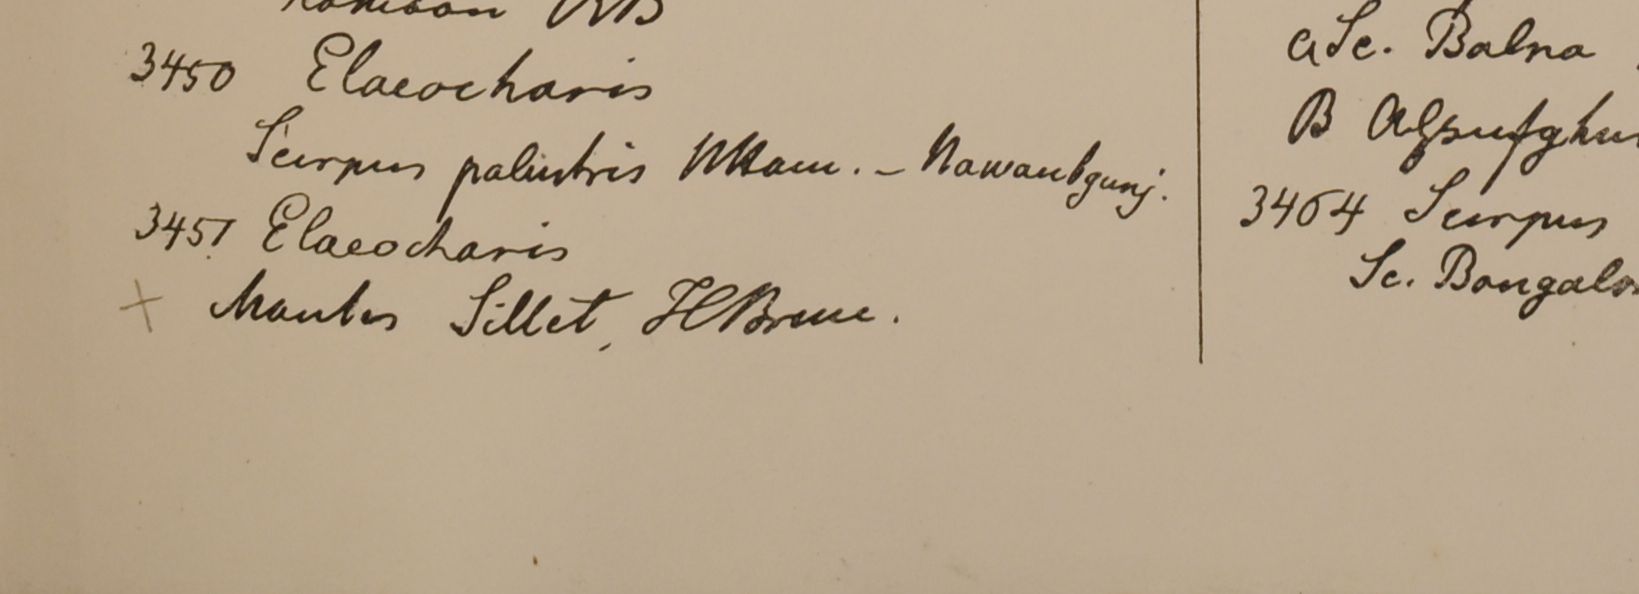 3450 Elaeocharis
Scirpus palustris Ham. - Nawaubgunj.
3451 Elaeocharis
+ Montes Sillet, HBruce.
a Sc. Balna
B
3464 Scirpus
Sc. Bongalo